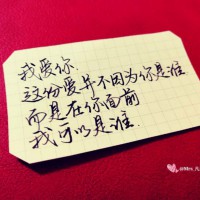 我爱你.
这份爱并不因为你是谁
而是在你面前
我可以是谁.
@Mrs.凡